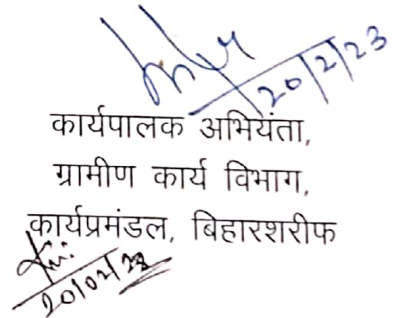 20/2/23
कार्यपालक अभियंता,
ग्रामीण कार्य विभाग,
कार्यप्रमंडल, बिहारशरीफ
20/02/23